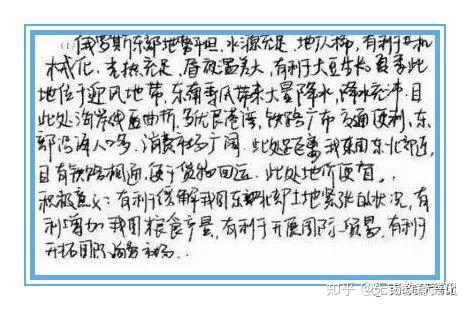 (1)俄罗斯东部地势平坦,水源充足,地广人稀,有利于机
械化,光热充足,昼夜温差大,有利于大豆生长,夏季此
地位于迎风地带,东南季风带来大量降水,降水充沛,且
此处海岸线曲折,多优良港湾,铁路广布交通便利,东
部沿海人口多,消费市场广阔,此处距离我国东北部近,
且有铁路相通,便于货物回运。此处地价便宜。
积极意义:有利于缓解我国东北部土地紧张的状况,有
利增加我国粮食产量,有利于开展国际贸易,有利于
开拓国际市场.
知乎